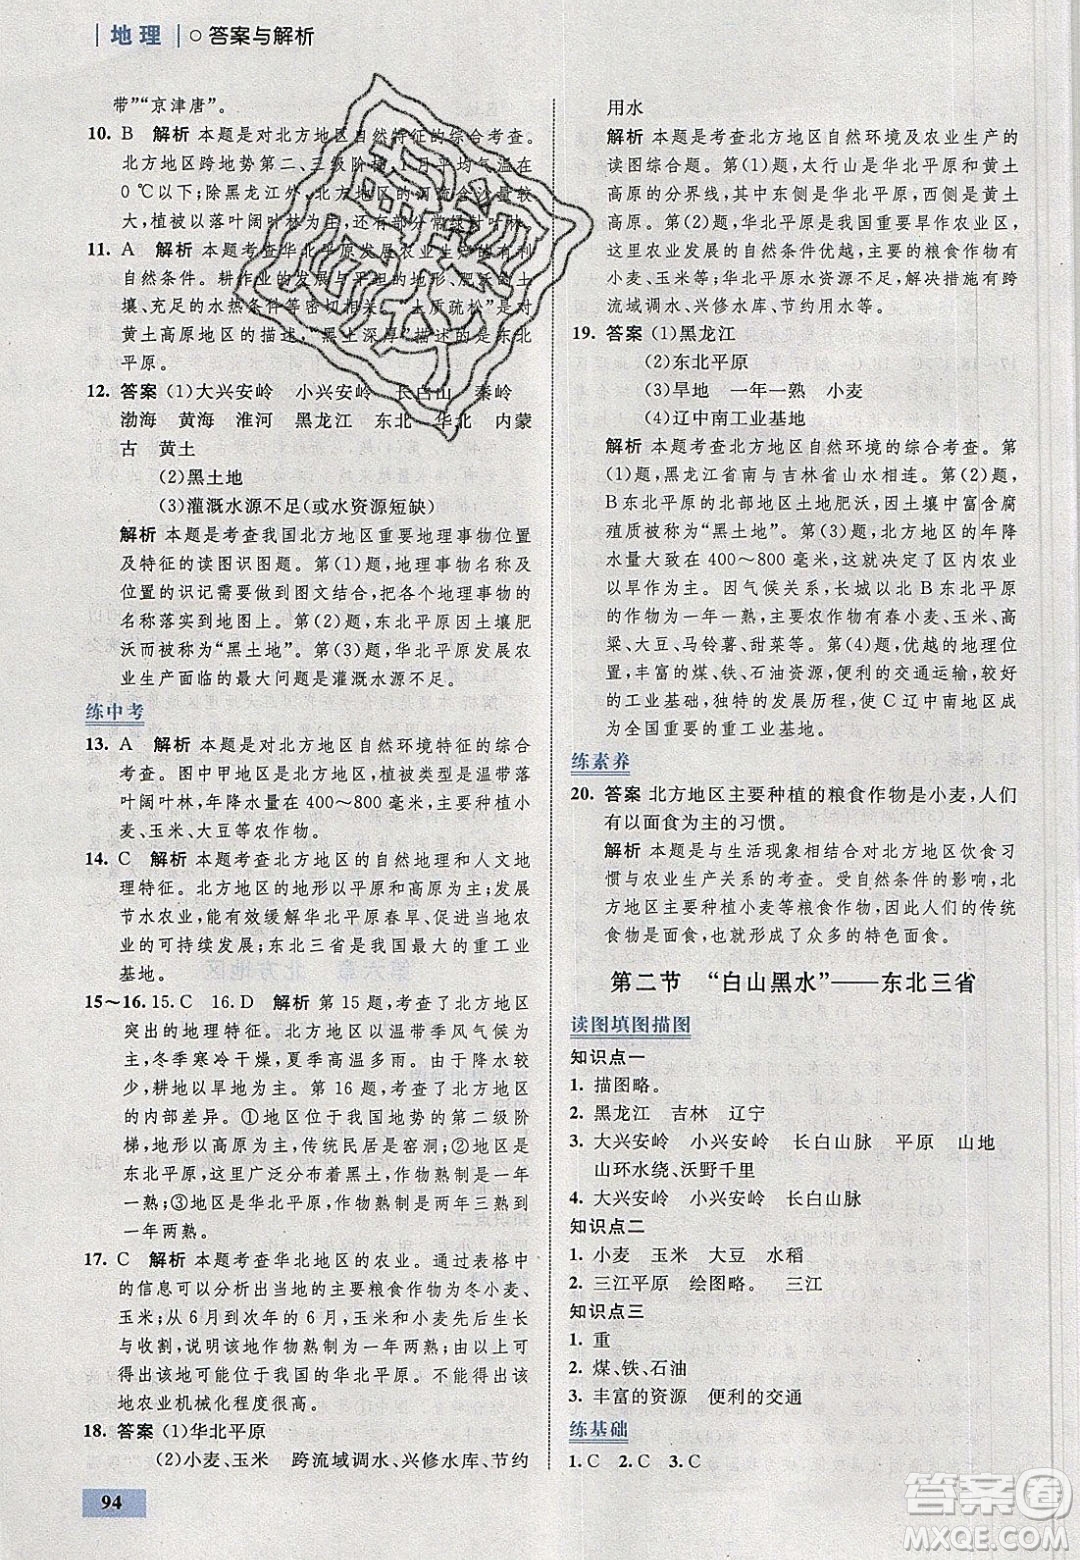 地理 答案与解析
带”“京津唐”。
10. B 解析 本题是对北方地区自然特征的综合考查。
北方地区跨地势第二、三级阶梯,
月平均气温在
0 ℃以下;除黑龙江外,北方地区的河流含沙量较
大,植被以落叶阔叶林为主,还有部分常绿针叶林。
11. A 解析 本题考查华北平原发展农业生产的有利
自然条件。耕作业的发展与平坦的地形、肥沃的土
壤、充足的水热条件等密切相关。“土质疏松”是对
黄土高原地区的描述,“黑土深厚”描述的是东北
平原。
12. 答案 (1)大兴安岭 小兴安岭 长白山 秦岭
渤海 黄海 淮河 黑龙江 东北 华北 内蒙
古 黄土
(2)黑土地
(3)灌溉水源不足(或水资源短缺)
解析 本题是考查我国北方地区重要地理事物位置
及特征的读图识图题。第(1)题,地理事物名称及
位置的识记需要加强图文结合,将重要地理事物的
名称落实到地图上。第(2)题,东北平原因土壤肥
沃而被称为“黑土地”。第(3)题,华北平原发展农
业生产面临的最大问题是灌溉水源不足。
练中考
13. A 解析 本题是对北方地区自然环境特征的综合
考查。图中甲地区是北方地区,植被类型是温带落
叶阔叶林,年降水量在400～800毫米,主要种植小
麦、玉米、大豆等农作物。
14. C 解析 本题考查北方地区的自然地理和人文地
理特征。北方地区的地形以平原和高原为主;发展
节水农业,能有效缓解华北平原春旱、促进当地农业
的可持续发展;东北三省是我国最大的重工业
基地。
15～16. 15. C 16. D 解析 第15题,考查了北方地区
突出的地理特征。北方地区以温带季风气候为
主,冬季寒冷干燥,夏季高温多雨。由于降水较
少,耕地以旱地为主。第16题,考查了北方地区的
内部差异。①地区位于我国地势的第二级阶
梯,地形以高原为主,传统民居是窑洞;②地区是
东北平原,这里广泛分布着黑土,作物熟制为一年一
熟;③地区是华北平原,作物熟制是两年三熟到
一年两熟。
17. C 解析 本题考查华北地区的农业。通过表格中
的信息可以分析出当地的主要粮食作物是冬小麦、
玉米;从6月到次年的6月,玉米和小麦先后生长
与收割,说明该地作物熟制为一年两熟;由以上可以
得出该地可能位于我国的华北平原,但不能得出该
地农业机械化程度很高。
18. 答案 (1)华北平原
(2)小麦、玉米 跨流域调水、兴修水库、节约
94
用水
解析 本题是考查北方地区自然环境及农业生产的
读图综合题。第(1)题,太行山是华北平原和黄土
高原的分界线,其中东侧为华北平原,西侧为黄土
高原。第(2)题,华北平原是我国重要旱作农业区,
这里农业发展的自然条件优越,主要的粮食作物有
小麦、玉米等;华北平原水资源不足,解决措施有跨
流域调水、兴修水库、节约用水等。
19. 答案 (1)黑龙江
(2)东北平原
(3)旱地 一年一熟 小麦
(4)辽中南工业基地
解析 本题考查北方地区自然环境的综合考查。第
(1)题,黑龙江省南与吉林省山水相连。第(2)题,
B东北平原的北部地区土地肥沃,因土壤中富含腐
殖质被称为“黑土地”。第(3)题,北方地区的年降
水量在400～800毫米,处于半湿润区,耕地类型
以旱作为主。因气候关系,长城以北B东北平原
的作物为一年一熟,主要农作物有春小麦、玉米、高
粱、大豆、马铃薯、甜菜等。第(4)题,优越的地理位
置,丰富的煤、铁、石油资源,便利的交通运输,较好
的工业基础,独特的发展历程,使C辽中南地区成为
全国重要的重工业基地。
练素养
20. 答案 北方地区主要种植的粮食作物是小麦,人们
有以面食为主的习惯。
解析 本题是与生活现象相结合对北方地区饮食习
惯与农业生产关系的考查。受自然条件的影响,北
方地区主要种植小麦等粮食作物,因此,人们的传统
食物以面食为主,形成了众多的特色面食。
第二节 “白山黑水”——东北三省
读图填图描图
知识点一
1. 描图略。
2. 黑龙江 吉林 辽宁
3. 大兴安岭 小兴安岭 长白山脉 平原 山地
山环水绕、沃野千里
4. 大兴安岭 小兴安岭 长白山脉
知识点二
1. 小麦 玉米 大豆 水稻
2. 三江平原 绘图略。 三江
知识点三
1. 重
2. 煤、铁、石油
3. 丰富的资源 便利的交通
练基础
1. C 2. C 3. C
答案圈
MXQE.COM